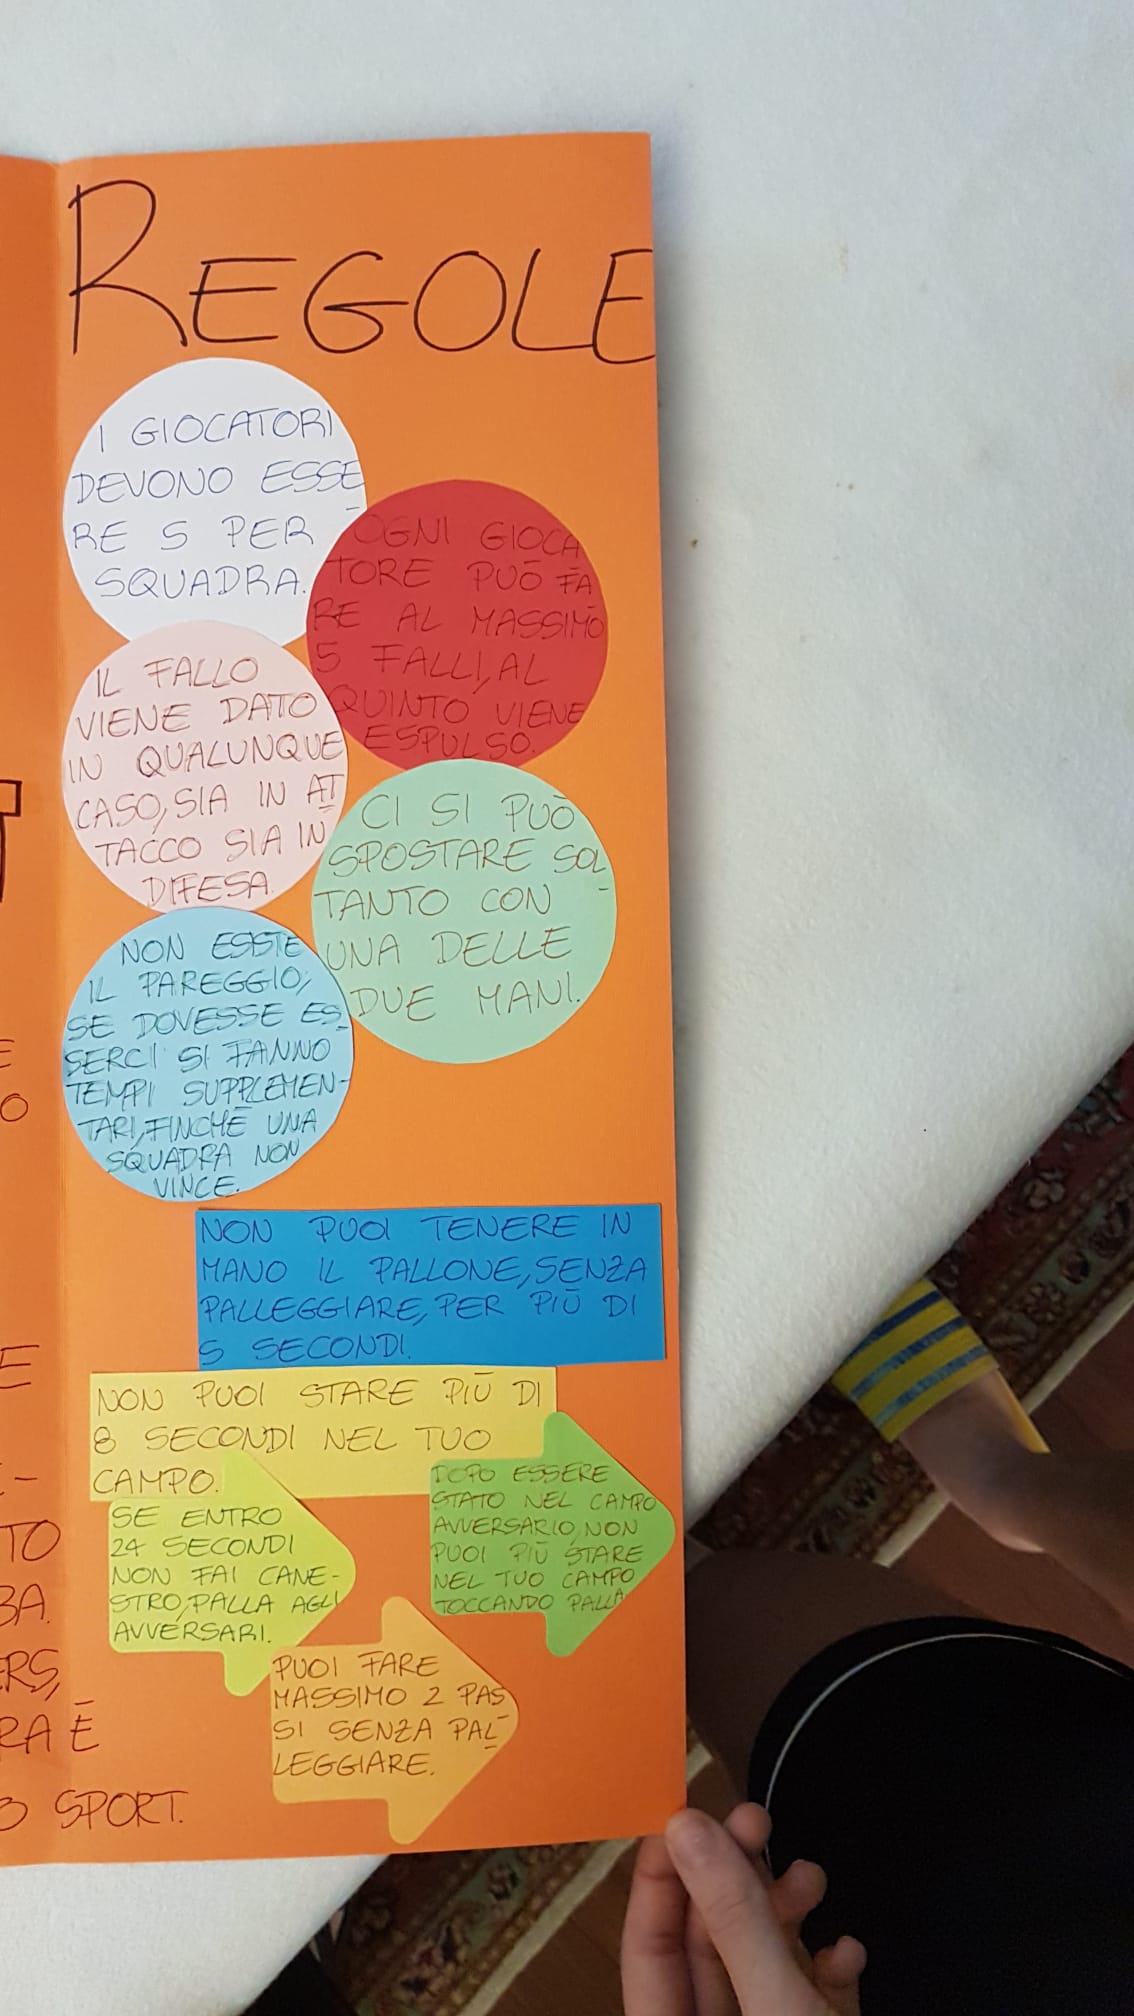 REGOLE
I GIOCATORI
DEVONO ESSE
RE 5 PER
SQUADRA.
OGNI GIOCA
TORE PUÒ FA
RE AL MASSIMO
5 FALLI, AL
QUINTO VIENE
ESPULSO.
IL FALLO
VIENE DATO
IN QUALUNQUE
CASO, SIA IN AT
TACCO SIA IN
DIFESA.
CI SI PUÒ
SPOSTARE SOL
TANTO CON
UNA DELLE
DUE MANI.
NON ESISTE
IL PAREGGIO,
SE DOVESSE ES-
SERCI SI FANNO
TEMPI SUPPLEMEN-
TARI, FINCHÈ UNA
SQUADRA NON
VINCE.
NON PUOI TENERE IN
MANO IL PALLONE, SENZA
PALLEGGIARE, PER PIÙ DI
5 SECONDI.
NON PUOI STARE PIÙ DI
8 SECONDI NEL TUO
CAMPO.
SE ENTRO
24 SECONDI
NON FAI CANE-
STRO, PALLA AGLI
AVVERSARI.
DOPO ESSERE
STATO NEL CAMPO
AVVERSARIO, NON
PUOI PIÙ STARE
NEL TUO CAMPO
TOCCANDO PALLA
PUOI FARE
MASSIMO 2 PAS
SI SENZA PAL-
LEGGIARE.
E
O
E
-
TO
BA.
ERS,
RA È
O SPORT.